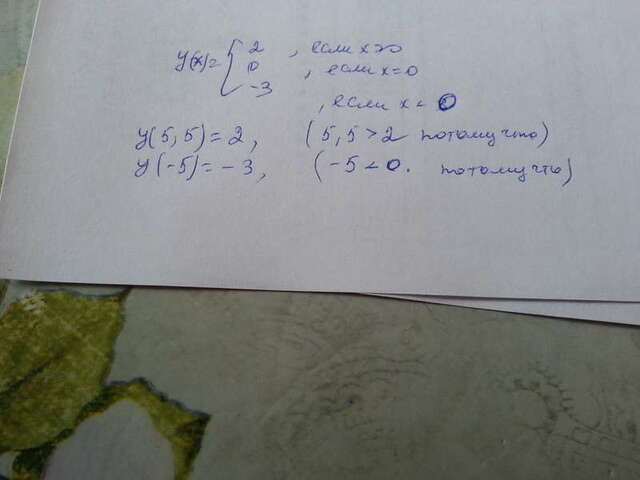 y(x)= { 2 , если x>0
0 , если x=0
-3 , если x < 0
y(5,5)=2, (5,5>2 потому что)
y(-5)=-3, (-5<0. потому что)